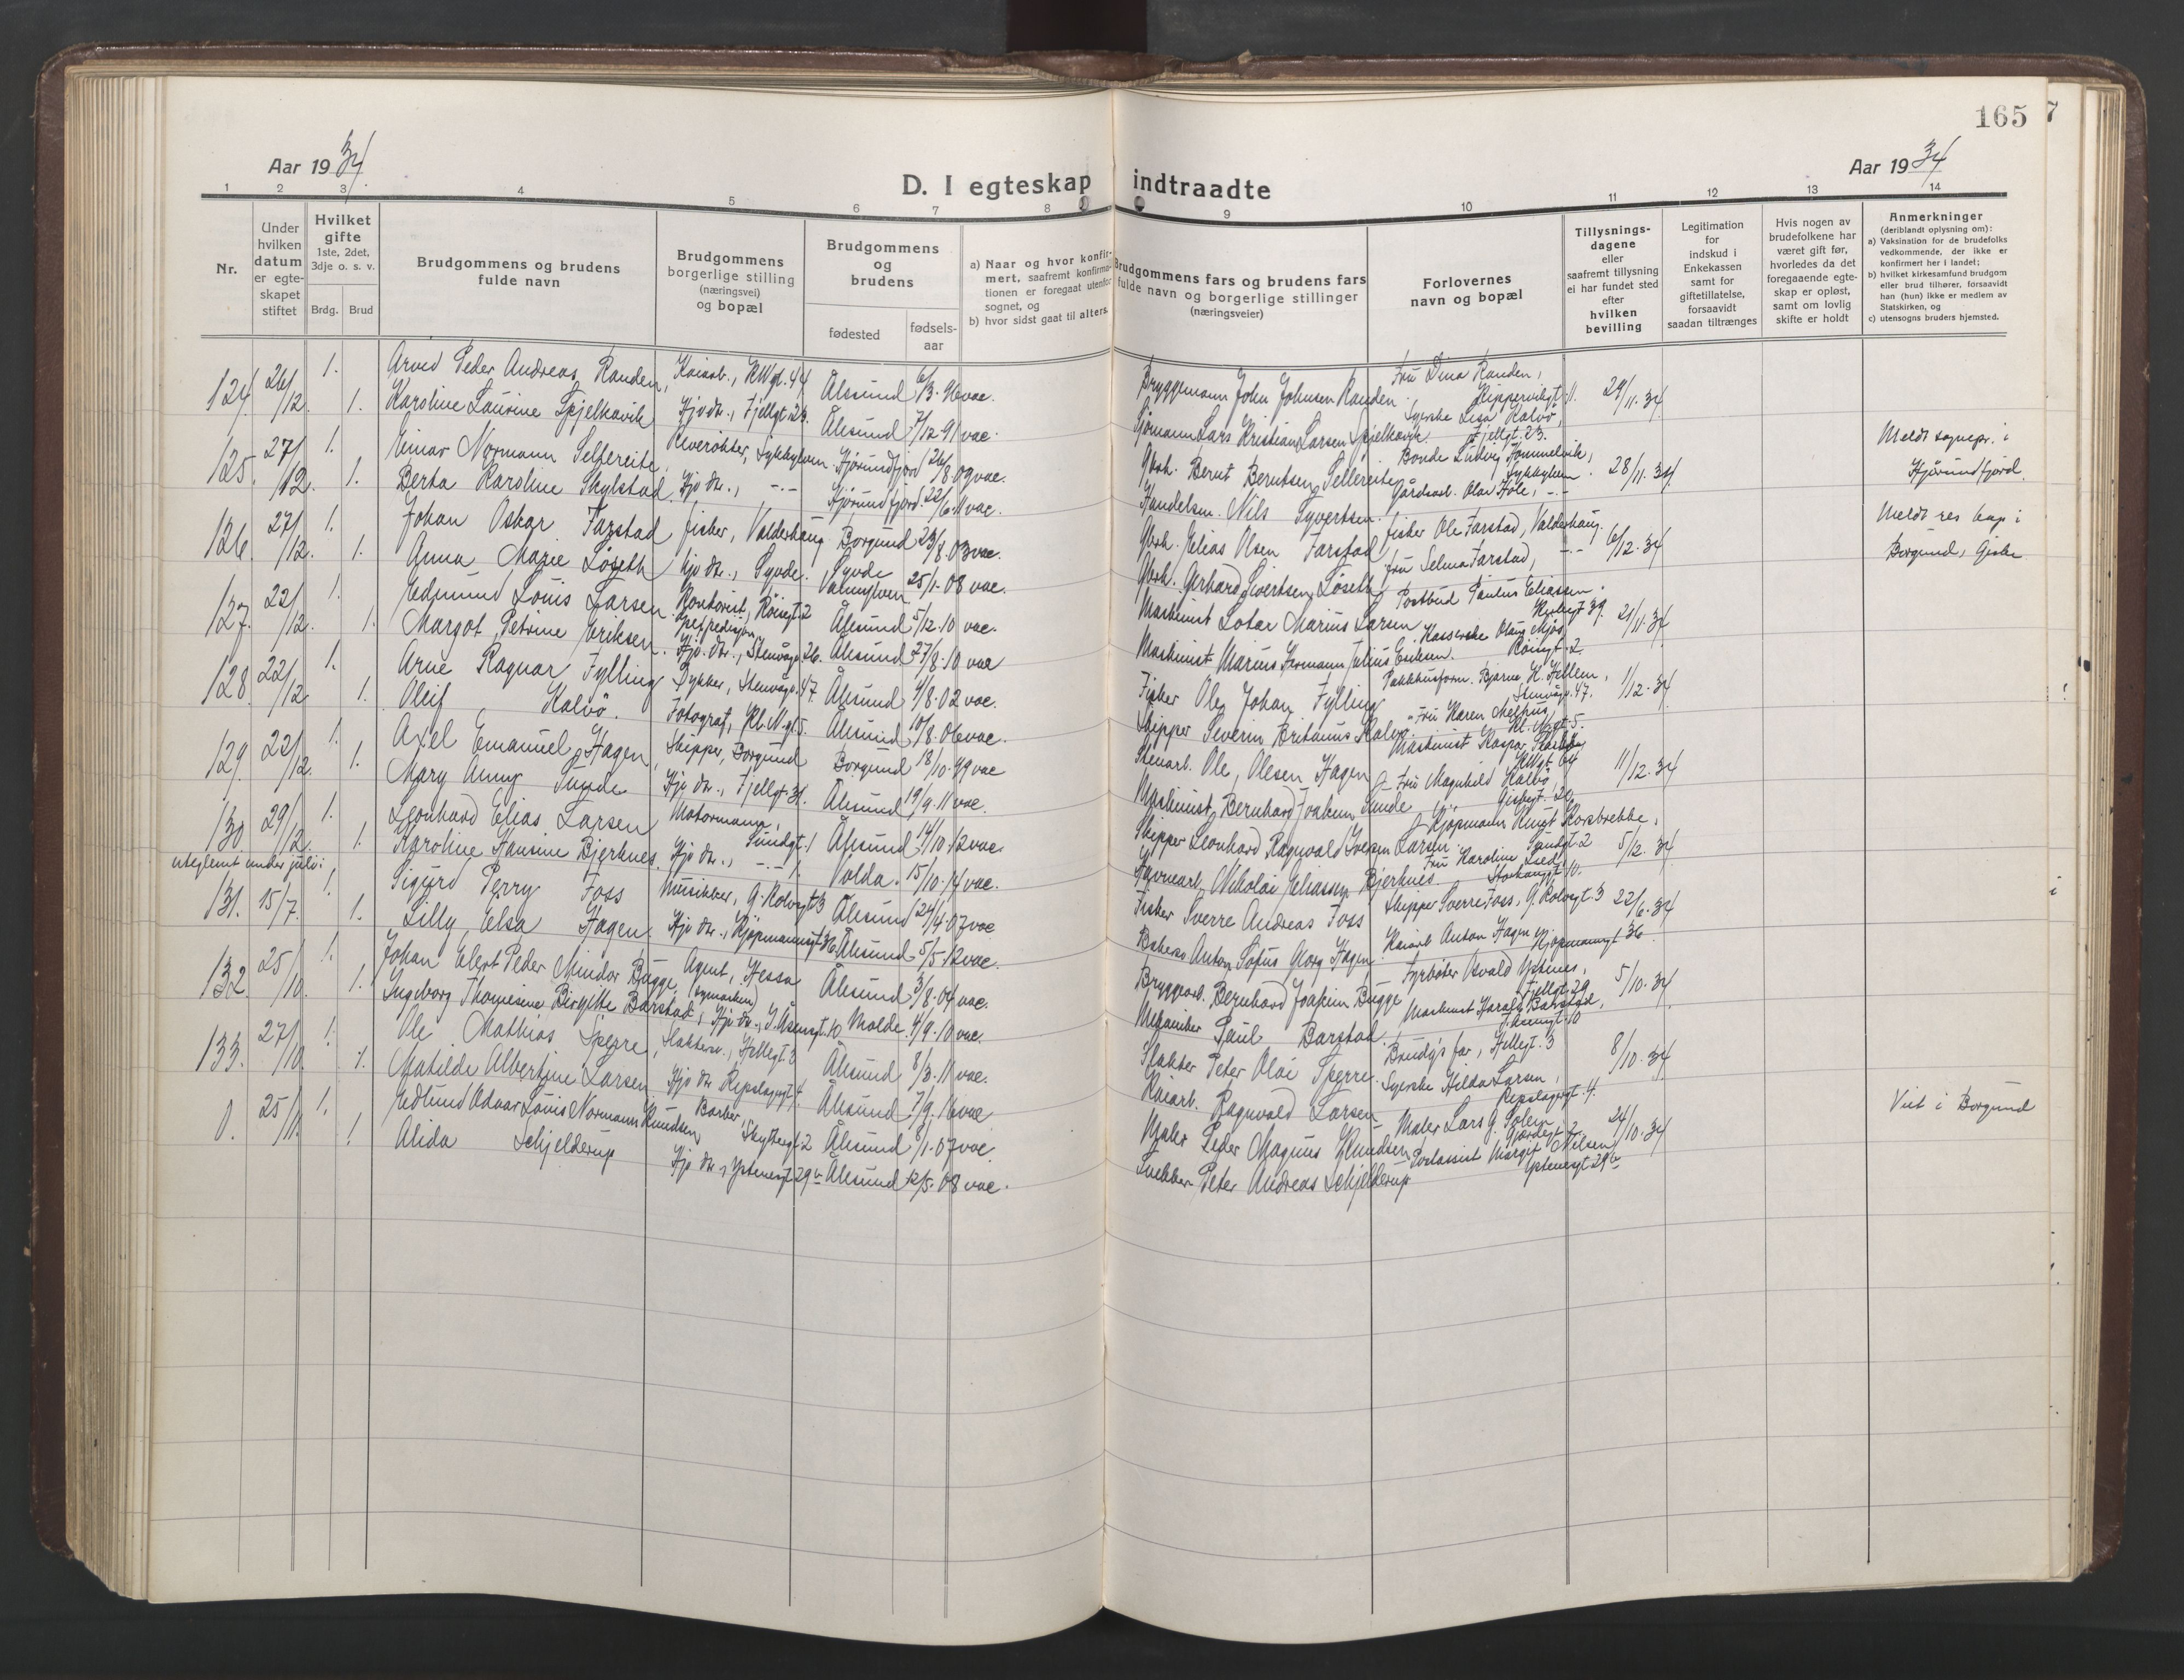 165
7
Aar 1934
Aar 1934
D. I egteskap indtraadte
1 2 3 4 5 6 7 8 9 10 11 12 13 14
Nr.
Under hvilken datum er egteskapet stiftet
Hvilket gifte 1ste, 2det, 3dje o. s. v.
Brdg. Brud
Brudgommens og brudens fulde navn
Brudgommens borgerlige stilling (næringsvei) og bopæl
Brudgommens og brudens
fødested
fødsels-aar
a) Naar og hvor konfirmert, saafremt konfirmationen er foregaat utenfor sognet, og
b) hvor sidst gaat til alters.
Brudgommens fars og brudens fars fulde navn og borgerlige stillinger (næringsveier)
Forlovernes navn og bopæl
Tillysningsdagene eller saafremt tillysning ei har fundet sted efter hvilken bevilling
Legitimation for indskud i Enkekassen samt for giftetillatelse, forsaavidt saadan tiltrænges
Hvis nogen av brudefolkene har været gift før, hvorledes da det foregaaende egteskap er opløst, samt om lovlig skifte er holdt
Anmerkninger
(deriblandt oplysning om):
a) Vaksination for de brudefolks vedkommende, der ikke er konfirmert her i landet;
b) hvilket kirkesamfund brudgom eller brud tilhører, forsaavidt han (hun) ikke er medlem av Statskirken, og
c) utensogns bruders hjemsted.
124. 26/12. 1. Arvid Peder Andreas Randen, Kaiarb., KWgt. 44 Ålesund 6/3. 96 vac. Bryggemann John Johnsen Randen. Fru Dina Randen, Skippervikgt. 11. 29/11. 34
1. Karoline Laurine Spjelkavik Hjv dtr., Fjellgt. 23. Ålesund 7/12 91 vac. Sjømann Lars Kristian Larsen Spjelkavik. Syerske Lisa Kalvø, Fjellgt. 23.
125. 27/12. 1. Einar Normann Sellereite, Sykkylven Hjørundfjord 26/8. 09 vac. Gbrh. Bernt Berntsen Sellereite Bonde Ludvig Hammelvik, Sykkylven. 28/11. 34 Meldt sognepr. i
1. Berta Karoline Skylstad, Hjv dtr., -.- Hjørundfjord. 22/6. 11 vac. Handelsm. Nils Syvertsen. Gårdearb. Olav Hole, -.- Hjørundfjord.
126. 27/12. 1. Johan Oskar Farstad, fisker, Valderhaug Borgund 23/8. 03 vac. Gbrh. Elias Olsen Farstad, fisker Ole Farstad, Valderhaug. 6/12. 34 Meldt res kap i
1. Anna Marie Løseth hjv dtr., Syvde. Syvde 25/1. 08 vac. Gbrh. Gerhard Sivertsen Løseth, fru Selma Farstad, -.- Borgund, Giske
127. 22/12. 1. Edmund Louis Larsen. Kontorist, Røisgt. 2 Ålesund 5/12. 10 vac. Maskinist Lotar Marius Larsen Postbud Paulus Eliassen. 21/11. 34
1. Margot Petrine Eriksen. Hjv. dtr., Stenvåg. 26. Ålesund 27/8. 10 vac Maskinist Marius Hermann Julius Eriksen. Røisgt. 2.
128 22/12 1. Arne Ragnar Fylling Dykker, Stenvåg. 47. Ålesund 4/8. 02 vac. Fisker Ole Johan Fylling Pakkhusform. Bjarne H. Hellem, Stenvåg. 47. 1/12. 34
1. Oleif Kalvø. Fotograf, Kl. N. gt. 5. Ålesund 10/8. 06 vac. Skipper Severin Britanus Kalvø Fru Karen Melhus, Kl. Ngt. 5.
129. 22/12. 1. Axel Emanuel Hagen, Skipper, Borgund Borgund 18/10. 99 vac Stenarb. Ole Olesen Hagen Maskinist Kaspar KWgt 64 11/12. 34
1. Mary Anny Sunde Hjv dtr., Fjellgt. 31. Ålesund 19/9. 11 vac. Maskinist Bernhard Joakim Sunde Fru Magnhild Kalvø
130. 29/12. 1. Leonhard Elias Larsen Motormann, Sundgt. 1 Ålesund 14/10. 12 vac. Skipper Leonhard Ragnvald Iversen Larsen. Kjøpmann Knut Korsbrekke, Sundgt. 2 5/12. 34
1. Karoline Hansine Bjerknes. Hjv dtr., -.- 1. Volda. 15/10. 14 vac. Havnearb. Nikolai Eliassen Bjerknes. Fru Karoline
uteglemt under juli:
131. 15/7. 1. Sigurd Perry Foss Musikker, G. Rolvsgt 3 Ålesund 24/4. 07 vac Fisker Sverre Andreas Foss Skipper Sverre Foss, G. Rolvsgt. 3 22/6. 34
1. Lilly Elsa Hagen. Hjv dtr., Kjøpmannsgt 36 Ålesund 5/5. 12 vac. Anton Sofus Georg Hagen. Kaiarb Anton Hagen Kjøpmannsgt 36.
132. 25/10. 1. Johan Elert Peder Mindor Bugge, Agent, Hessa (symaskin) Ålesund 3/8. 04 vac. Bryggearb. Bernhard Joakim Bugge Fyrbøter Osvald Ystenes, Fjellgt. 29 5/10. 34
1. Ingeborg Thomesine Birgitte Barstad, Hjv dtr., I. Åsensgt. 10 Molde. 4/9. 10 vac. Mekaniker Paul Barstad. Maskinist Harald Barstad, I. Åsensgt. 10
133. 27/10. 1. Ole Mathias Sperre, Slaktersv., Hellegt. 3 Ålesund 8/3. 11 vac. Slakter Peter Olai Sperre. Brudg's far, Hellegt. 3 8/10. 34
1. Matilde Albertine Larsen Hjv dtr Repslagergt. 4. Ålesund 7/9. 16 vac. Kaiarb. Ragnvald Larsen Syerske Hilda Larsen, Repslagergt. 4.
0. 25/11. 1. Edlund Odvar Louis Normann Knudsen, Barber, Skyttergt. 2 Ålesund /1. 07 vac. Maler Peder Magnus Knudsen Maler Lars G. 24/10. 34 Viet i Borgund
1. Alida Schjelderup Hjv dtr., Ystenesgt 29 b Ålesund 12/5. 08 vac. Snekker Peter Andreas Schjelderup Postassist Margit Nilsen Ystenesgt 29 b